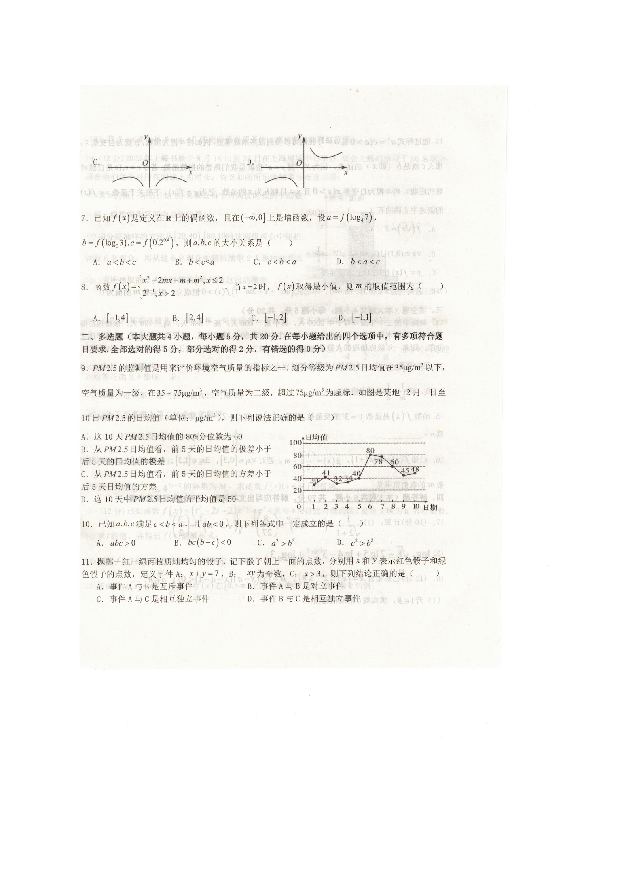 C. y O x D. y O x
7. 已知 f(x) 是定义在 R 上的偶函数，且在 (-∞,0] 上是增函数，设 a = f(log₄7),
c = f(0.2^0.6)，则 a,b,c 的大小关系是（ ）
A. a<b<c B. b<c<a C. c<b<a D. b<a<c
8. 函数 f(x)= 2ˣ⁻¹, x>2 当 x=2 时，f(x) 取得最小值，则 m 的取值范围为（ ）
A. [-1,4] B. [2,4] C. [-1,2] D. [-1,1]
二、多选题（本大题共 4 小题，每小题 5 分，共 20 分.在每小题给出的四个选项中，有多项符合题
目要求.全部选对的得 5 分，部分选对的得 2 分，有错选的得 0 分）
9. PM2.5 的监测值是用来评价环境空气质量的指标之一.划分等级为 PM2.5 日均值在 35μg/m³ 以下，
空气质量为一级，在 35～75μg/m³，空气质量为二级，超过 75μg/m³ 为超标．如图是某地 12 月 1 日至
10 日 PM2.5 的日均值（单位：μg/m³），则下列说法正确的是（ ）
A．这 10 天 PM2.5 日均值的 80%分位数为 60
B．从 PM2.5 日均值看，前 5 天的日均值的极差小于
后 5 天的日均值的极差
C．从 PM2.5 日均值看，前 5 天的日均值的方差小于
后 5 天日均值的方差
D．这 10 天中 PM2.5 日均值的平均值是 50
日均值
100
80
60
40
20
41 40 80 78 45 48
0 1 2 3 4 5 6 7 8 9 10 日期
10．已知 a,b,c 满足 c<b<a，且 ab<0，则下列各式中一定成立的是（ ）
A. abc>0 B. bc(b-c)<0
11．掷一红一绿两枚质地均匀的骰子，记下骰子朝上一面的点数，分别用 x 和 y 表示红色骰子和绿
色骰子的点数，定义事件 A：x+y=7，B：xy 为奇数，C：x>3，则下列结论正确的是（ ）
A．事件 A 与 B 是互斥事件 B．事件 A 与 B 是对立事件
C．事件 A 与 C 是相互独立事件 D．事件 B 与 C 是相互独立事件